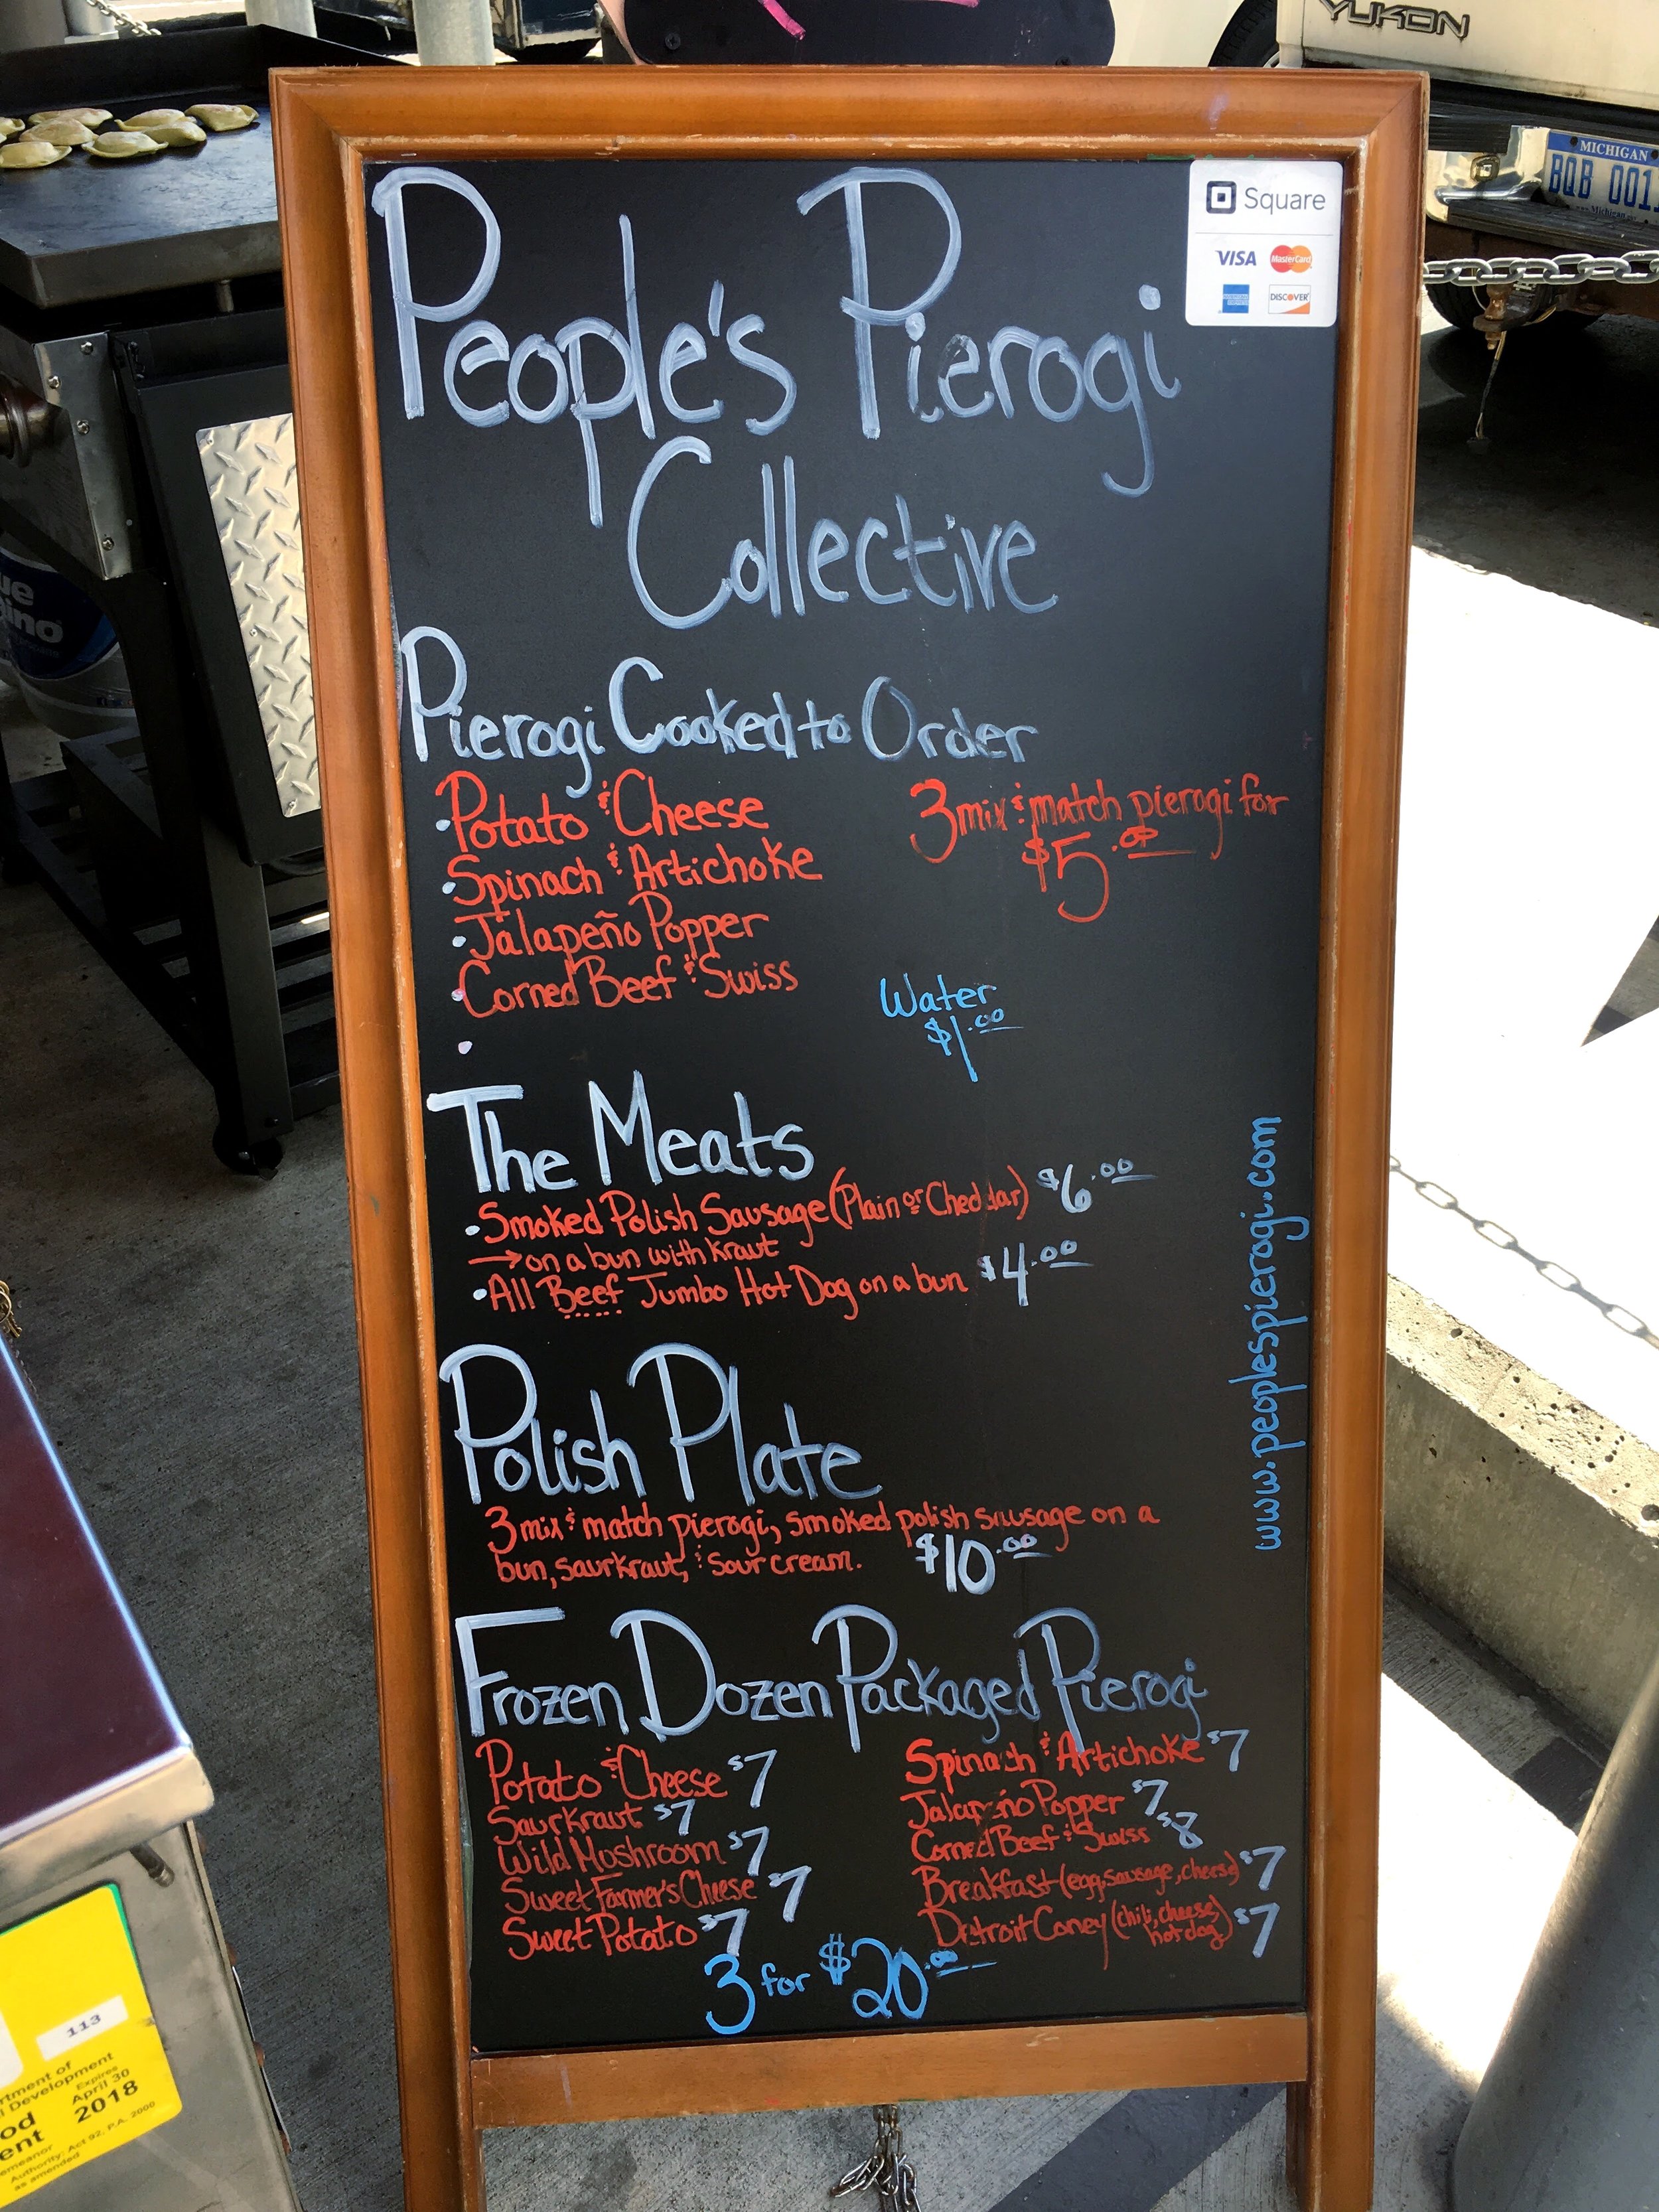 YUKON
MICHIGAN
BQB 001
Square
VISA MasterCard
DISCOVER
People's Pierogi
Collective
Pierogi Cooked to Order
• Potato & Cheese
• Spinach & Artichoke
• Jalapeño Popper
• Corned Beef & Swiss
•
3 mix & match pierogi for
$5.00
Water
$1.00
The Meats
• Smoked Polish Sausage (Plain or Cheddar) $6.00
→ on a bun with Kraut
• All Beef Jumbo Hot Dog on a bun $4.00
www.peoplespierogi.com
Polish Plate
3 mix & match pierogi, smoked polish sausage on a
bun, saurkraut, & sour cream. $10.00
Frozen Dozen Packaged Pierogi
Potato & Cheese $7
Saurkraut $7
Wild Mushroom $7
Sweet Farmer's Cheese $7
Sweet Potato $7
Spinach & Artichoke $7
Jalapeño Popper $7
Corned Beef & Swiss $8
Breakfast (egg, sausage, cheese) $7
Detroit Coney (chili, cheese, hotdog) $7
3 for $20.00
113
Expires
April 30
2018
Authority: Act 92, P.A. 2000
as amended